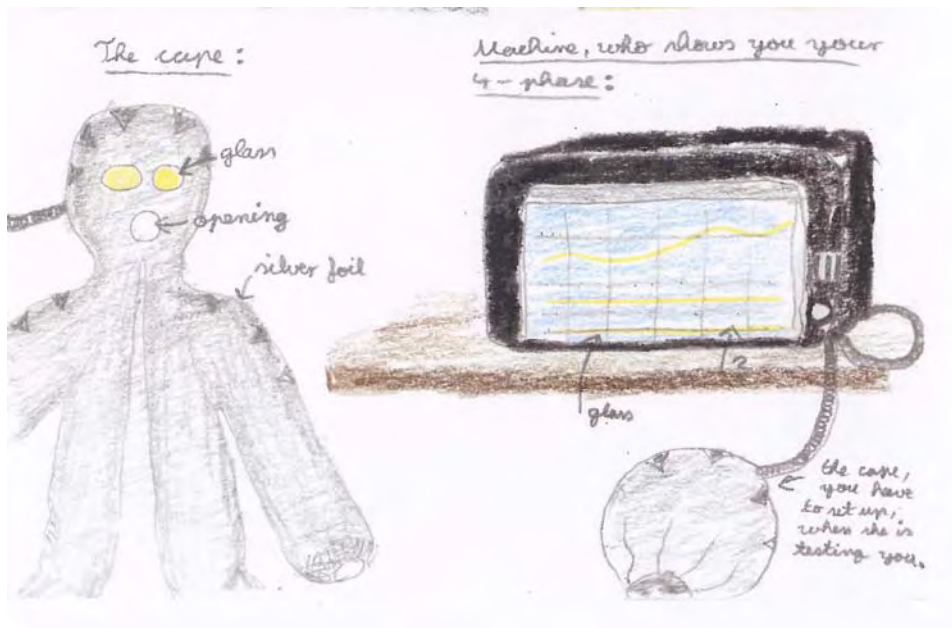 The cape:
glass
opening
silver foil
Machine, who shows you your
4-phase:
glass
2
the cape,
you have
to set up,
when she is
testing you.